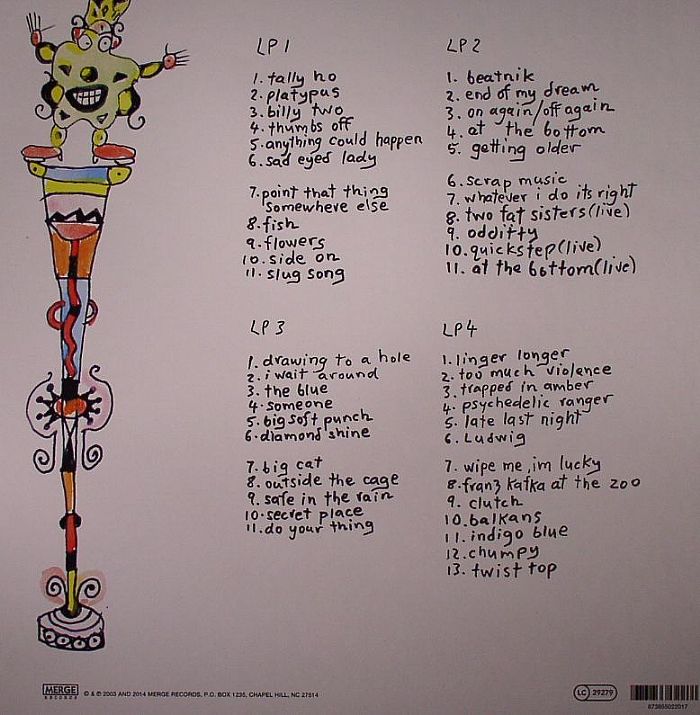 LP 1
1. tally ho
2. platypus
3. billy two
4. thumbs off
5. anything could happen
6. sad eyed lady
7. point that thing
somewhere else
8. fish
9. flowers
10. side on
11. slug song
LP 2
1. beatnik
2. end of my dream
3. on again/off again
4. at the bottom
5. getting older
6. scrap music
7. whatever i do its right
8. two fat sisters(live)
9. oddity
10. quickstep(live)
11. at the bottom(live)
LP 3
1. drawing to a hole
2. i wait around
3. the blue
4. someone
5. big soft punch
6. diamond shine
7. big cat
8. outside the cage
9. safe in the rain
10. secret place
11. do your thing
LP 4
1. linger longer
2. too much violence
3. trapped in amber
4. psychedelic ranger
5. late last night
6. Ludwig
7. wipe me, im lucky
8. franz kafka at the zoo
9. clutch
10. balkans
11. indigo blue
12. chumpy
13. twist top
MERGE
RECORDS
© & ℗ 2003 AND 2014 MERGE RECORDS, P.O. BOX 1235, CHAPEL HILL, NC 27514
LC 29279
673855022017